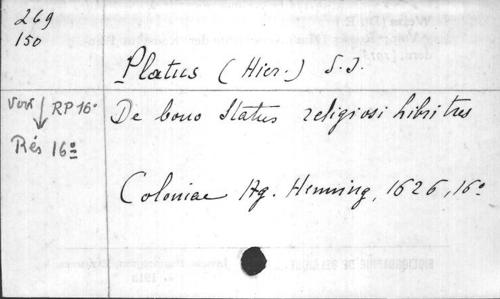 269
150
Platus (Hier.) S.J.
vers RP 16°
Rés 16°
De bono Status religiosi libri tres
Coloniae Ag. Henning, 1626, 16°